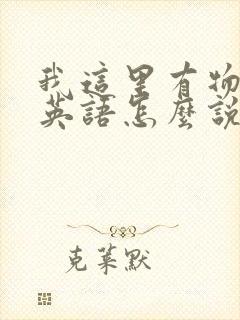 我這里有物
英語怎麼說
克萊默